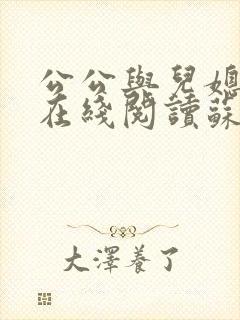 公公與兒媳
在綫閱讀蘇
大澤養了